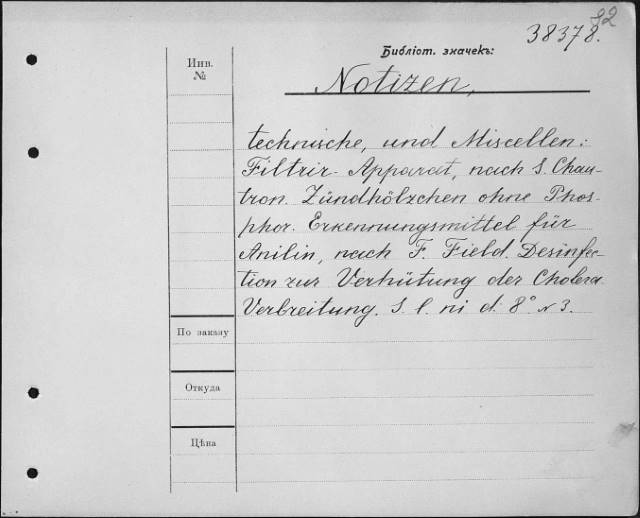 92
38378.
Библіот. значекъ:
Инв.
№
Notizen,
technische, und Miscellen:
Filtrir-Apparat, nach S. Chau-
tron. Zündhölzchen ohne Phos-
phor. Erkennungsmittel für
Anilin, nach F. Field. Desinfec-
tion zur Verhütung der Cholera
Verbreitung. S. l. ni d. 8° N 3.
По заказу
Откуда
Цѣна